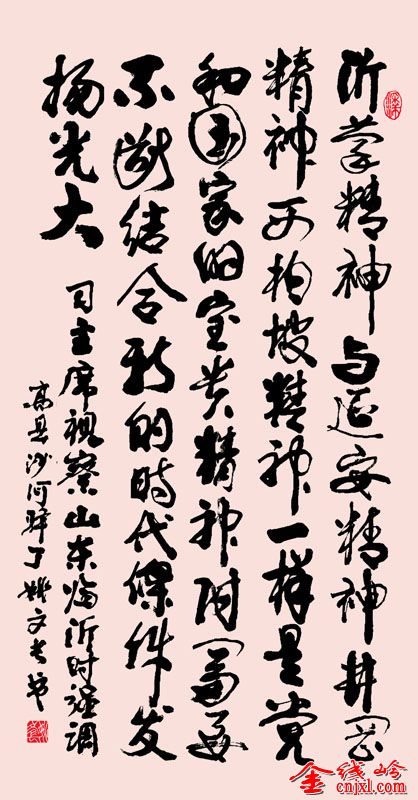 沂蒙精神与延安精神井冈
精神西柏坡精神一样是党
和国家的宝贵精神财富要
不断结合新的時代條件发
扬光大
习主席视察山东临沂时强调
高县沙河驿丁姚文
金线岭
cnjxl.com